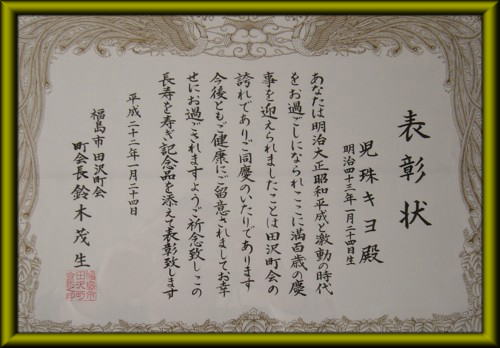 表彰状
児珠キヨ殿
明治四十三年一月二十四日生
あなたは明治大正昭和平成と激動の時代
をお過ごしになられここに満百歳の慶
事を迎えられましたことは田沢町会の
誇れでありご同慶のいたりであります
今後ともご健康にご留意されまして、お幸
せにお過ごされますようご祈念致しこの
長寿を寿ぎ記念品を添えて表彰致します
平成二十二年一月二十四日
福島市田沢町会
町会長鈴木茂生